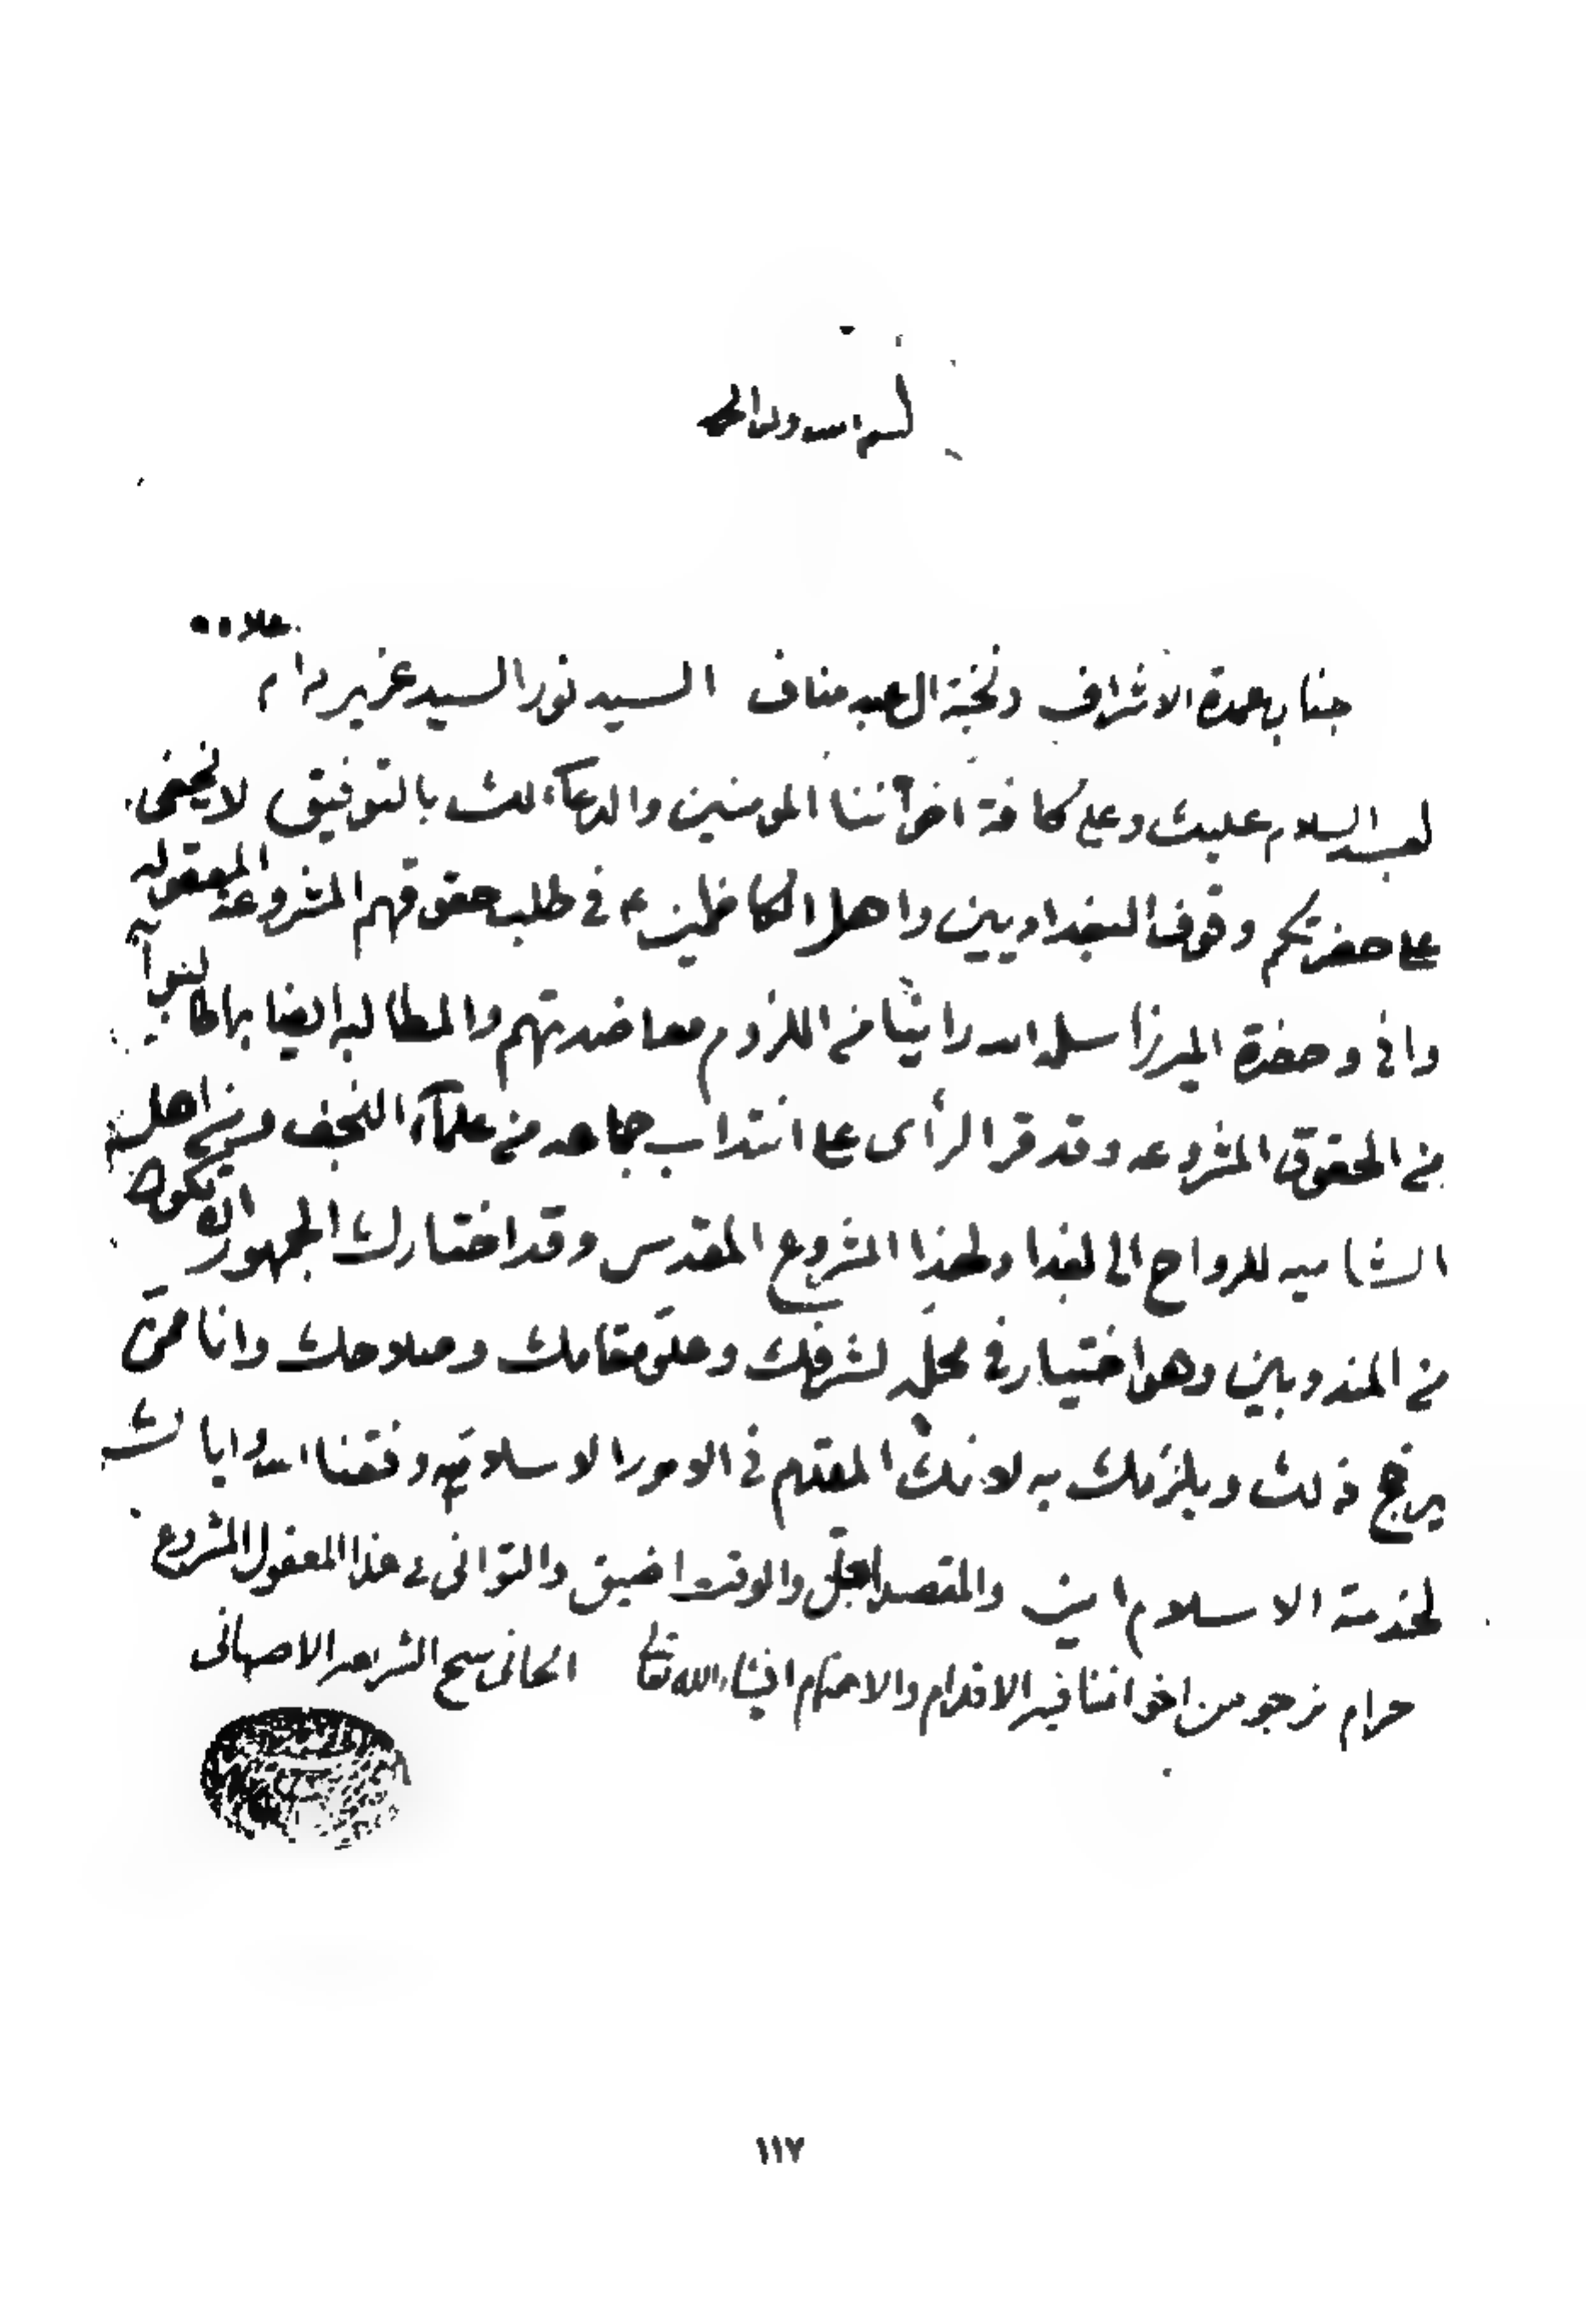 بسم الله وله الحمد
جناب عمدة الاشراف ونخبة ال عبد مناف السيد نور السيد عزيز دام علاه
بعد السلام عليك وعلى كافة اخواننا المؤمنين والدعاء لك بالتوفيق لا يخفى
على حضرتكم وقوف البغداديين واهل الكاظمين في طلب حقوقهم المشروعة المعقوله
واني وحضرة الميرزا سلمه الله راينا من اللازم معاضدتهم والمطالبه ايضا بما
من الحقوق المشروعه وقد قر الرأى على انتداب جماعه من علماء النجف ومن اهل
الشاميه للرواح الى بغداد لهذا المشروع المقدس وقد اختارك الجمهور ان تكون
من المندوبين وهو اختيار في محله لشرفك وعلو مقامك وصلاحك وانا ممن
يرجح ذلك ويلزمك به لانك المقدم في الامور الاسلاميه وفقنا الله واياك
لخدمة الاسلام امين والمقصد اجل والوقت اضيق والتوانى في هذا المعقول المشروع
حرام نرجو من اخواننا فيه الاقدام والاهتمام انشاء الله تعالى الجانى شيخ الشريعه الاصبهانى
١١٧